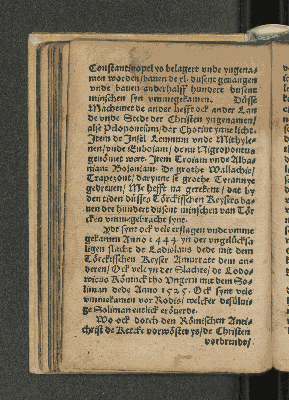 Constantinopel ys belagert vnde yngena-
men worden/ bauen de xl. dusent gevangen
vnde bauen anderhalff hundert dusent
minschen syn vmmegekamen. Düsse
Machemet de ander hefft ock ander Lan
de vnde Stede der Christen yngenamen/
alse Peloponesium/ dar Chotint ynne licht.
Item de Insel Lemnum vnde Mithyle-
nen/ vnde Euboiam/ de nu Nigropontus
genömet wert. Item Troiam vnde Alba-
niam Bosniam. De grothe Wallachie/
Trapezont/ darynne he grothe Tyrannye
gedreuen/ Me hefft na gerekent/ dat by
den tiden düsses Törckischen Keysers ba-
uen dre hundert dusent minschen van Tör
cken vmmegebracht syn.
Ydt synt ock vele erslagen vnde vmme
gekamen Anno 1444 yn der vnglücksa-
ligen slacht de Ladislaus dede mit dem
Törckischen Keyser Amurate dem an-
deren/ Ock vele yn der Slachte/ de Lodo-
wicus Köninck tho Vngern mit dem So-
liman dede Anno 1525. Ock synt vele
vmmekamen vor Rodis/ welcker desülui-
ge Soliman entlick eröuerde.
Wo ock dorch den Römischen Anti-
christ de Kercke vorwöstet ys/ de Christen
vorbrendet/